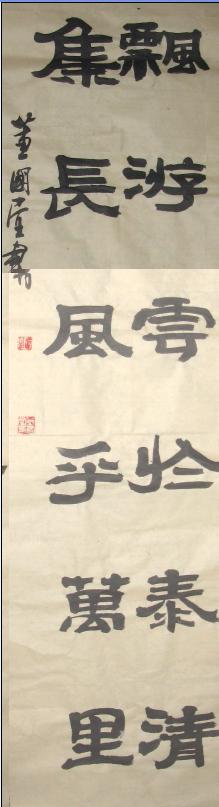 飄游雲於泰清
集長風乎萬里
董國書